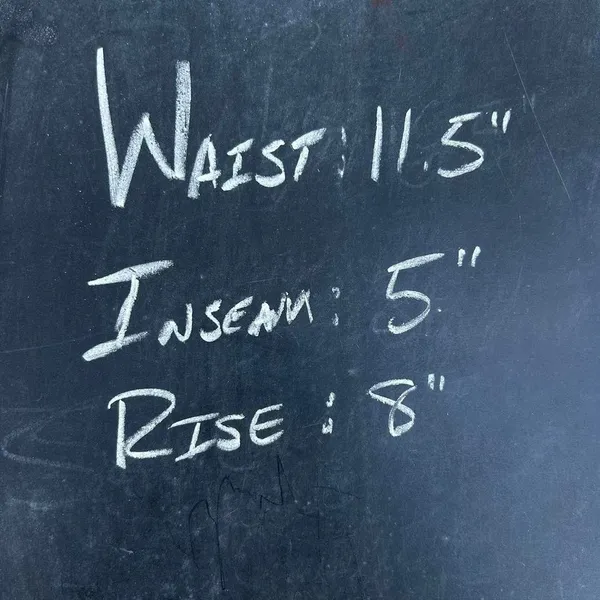 WAIST: 11.5"
INSEAM: 5"
RISE: 8"